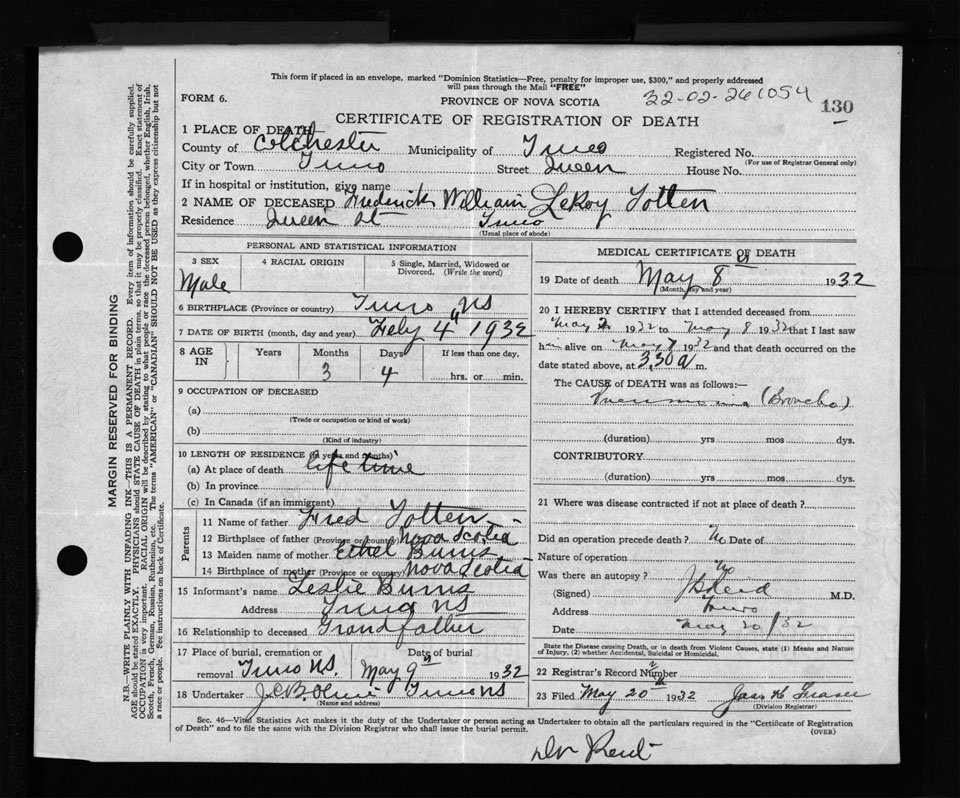 This form if placed in an envelope, marked "Dominion Statistics—Free, penalty for improper use, $300," and properly addressed
will pass through the Mail "FREE"
FORM 6.
PROVINCE OF NOVA SCOTIA
32-02-261054
130
CERTIFICATE OF REGISTRATION OF DEATH
1 PLACE OF DEATH
County of Colchester Municipality of Truro Registered No.
(For use of Registrar General only)
City or Town Truro Street Queen House No.
If in hospital or institution, give name
2 NAME OF DECEASED Frederick William LeRoy Totten
Residence Queen St Truro
(Usual place of abode)
PERSONAL AND STATISTICAL INFORMATION
3 SEX
Male
4 RACIAL ORIGIN
5 Single, Married, Widowed or
Divorced. (Write the word)
6 BIRTHPLACE (Province or country) Truro NS
7 DATE OF BIRTH (month, day and year) Feby 4" 1932
8 AGE IN
Years
Months 3
Days 4
If less than one day.
hrs. or min.
9 OCCUPATION OF DECEASED
(a)
(Trade or occupation or kind of work)
(b)
(Kind of industry)
10 LENGTH OF RESIDENCE (in years and months)
(a) At place of death life time
(b) In province
(c) In Canada (if an immigrant)
Parents
11 Name of father Fred Totten
12 Birthplace of father (Province or country) Nova Scotia
13 Maiden name of mother Ethel Burns
14 Birthplace of mother (Province or country) Nova Scotia
15 Informant's name Leslie Burns
Address Truro NS
16 Relationship to deceased Grandfather
17 Place of burial, cremation or
removal Truro NS.
Date of burial
May 9th 1932
18 Undertaker Truro NS
(Name and address)
MEDICAL CERTIFICATE OF DEATH
19 Date of death May 8th 1932
(Month, day and year)
20 I HEREBY CERTIFY that I attended deceased from
May 2 1932 to May 8 1932 that I last saw
him alive on May 7 1932 and that death occurred on the
date stated above, at 3,30 a m.
The CAUSE of DEATH was as follows:—
Pneumonia (Broncho)
(duration) yrs mos dys.
CONTRIBUTORY
(duration) yrs mos dys.
21 Where was disease contracted if not at place of death?
Did an operation precede death? No Date of
Nature of operation
Was there an autopsy? no
(Signed) M.D.
Address Truro
Date May 20/32
State the Disease causing Death, or in death from Violent Causes, state (1) Means and Nature
of Injury, (2) whether Accidental, Suicidal or Homicidal.
22 Registrar's Record Number
23 Filed May 20th 1932 Jas. H Fraser
(Division Registrar)
Sec. 46—Vital Statistics Act makes it the duty of the Undertaker or person acting as Undertaker to obtain all the particulars required in the "Certificate of Registration
of Death" and to file the same with the Division Registrar who shall issue the burial permit.
(OVER)
MARGIN RESERVED FOR BINDING
N.B.—WRITE PLAINLY WITH UNFADING INK—THIS IS A PERMANENT RECORD. Every item of information should be carefully supplied.
AGE should be stated EXACTLY. PHYSICIANS should STATE CAUSE OF DEATH in plain terms, so that it may be properly classified. Exact statement of
OCCUPATION is very important. RACIAL ORIGIN will be described by stating to what people or race the deceased person belonged, whether English, Irish,
Scotch, French, German, Russian, Ruthenian, etc. The terms "AMERICAN" or "CANADIAN" SHOULD NOT BE USED as they express citizenship but not
a race or people. See instructions on back of Certificate.